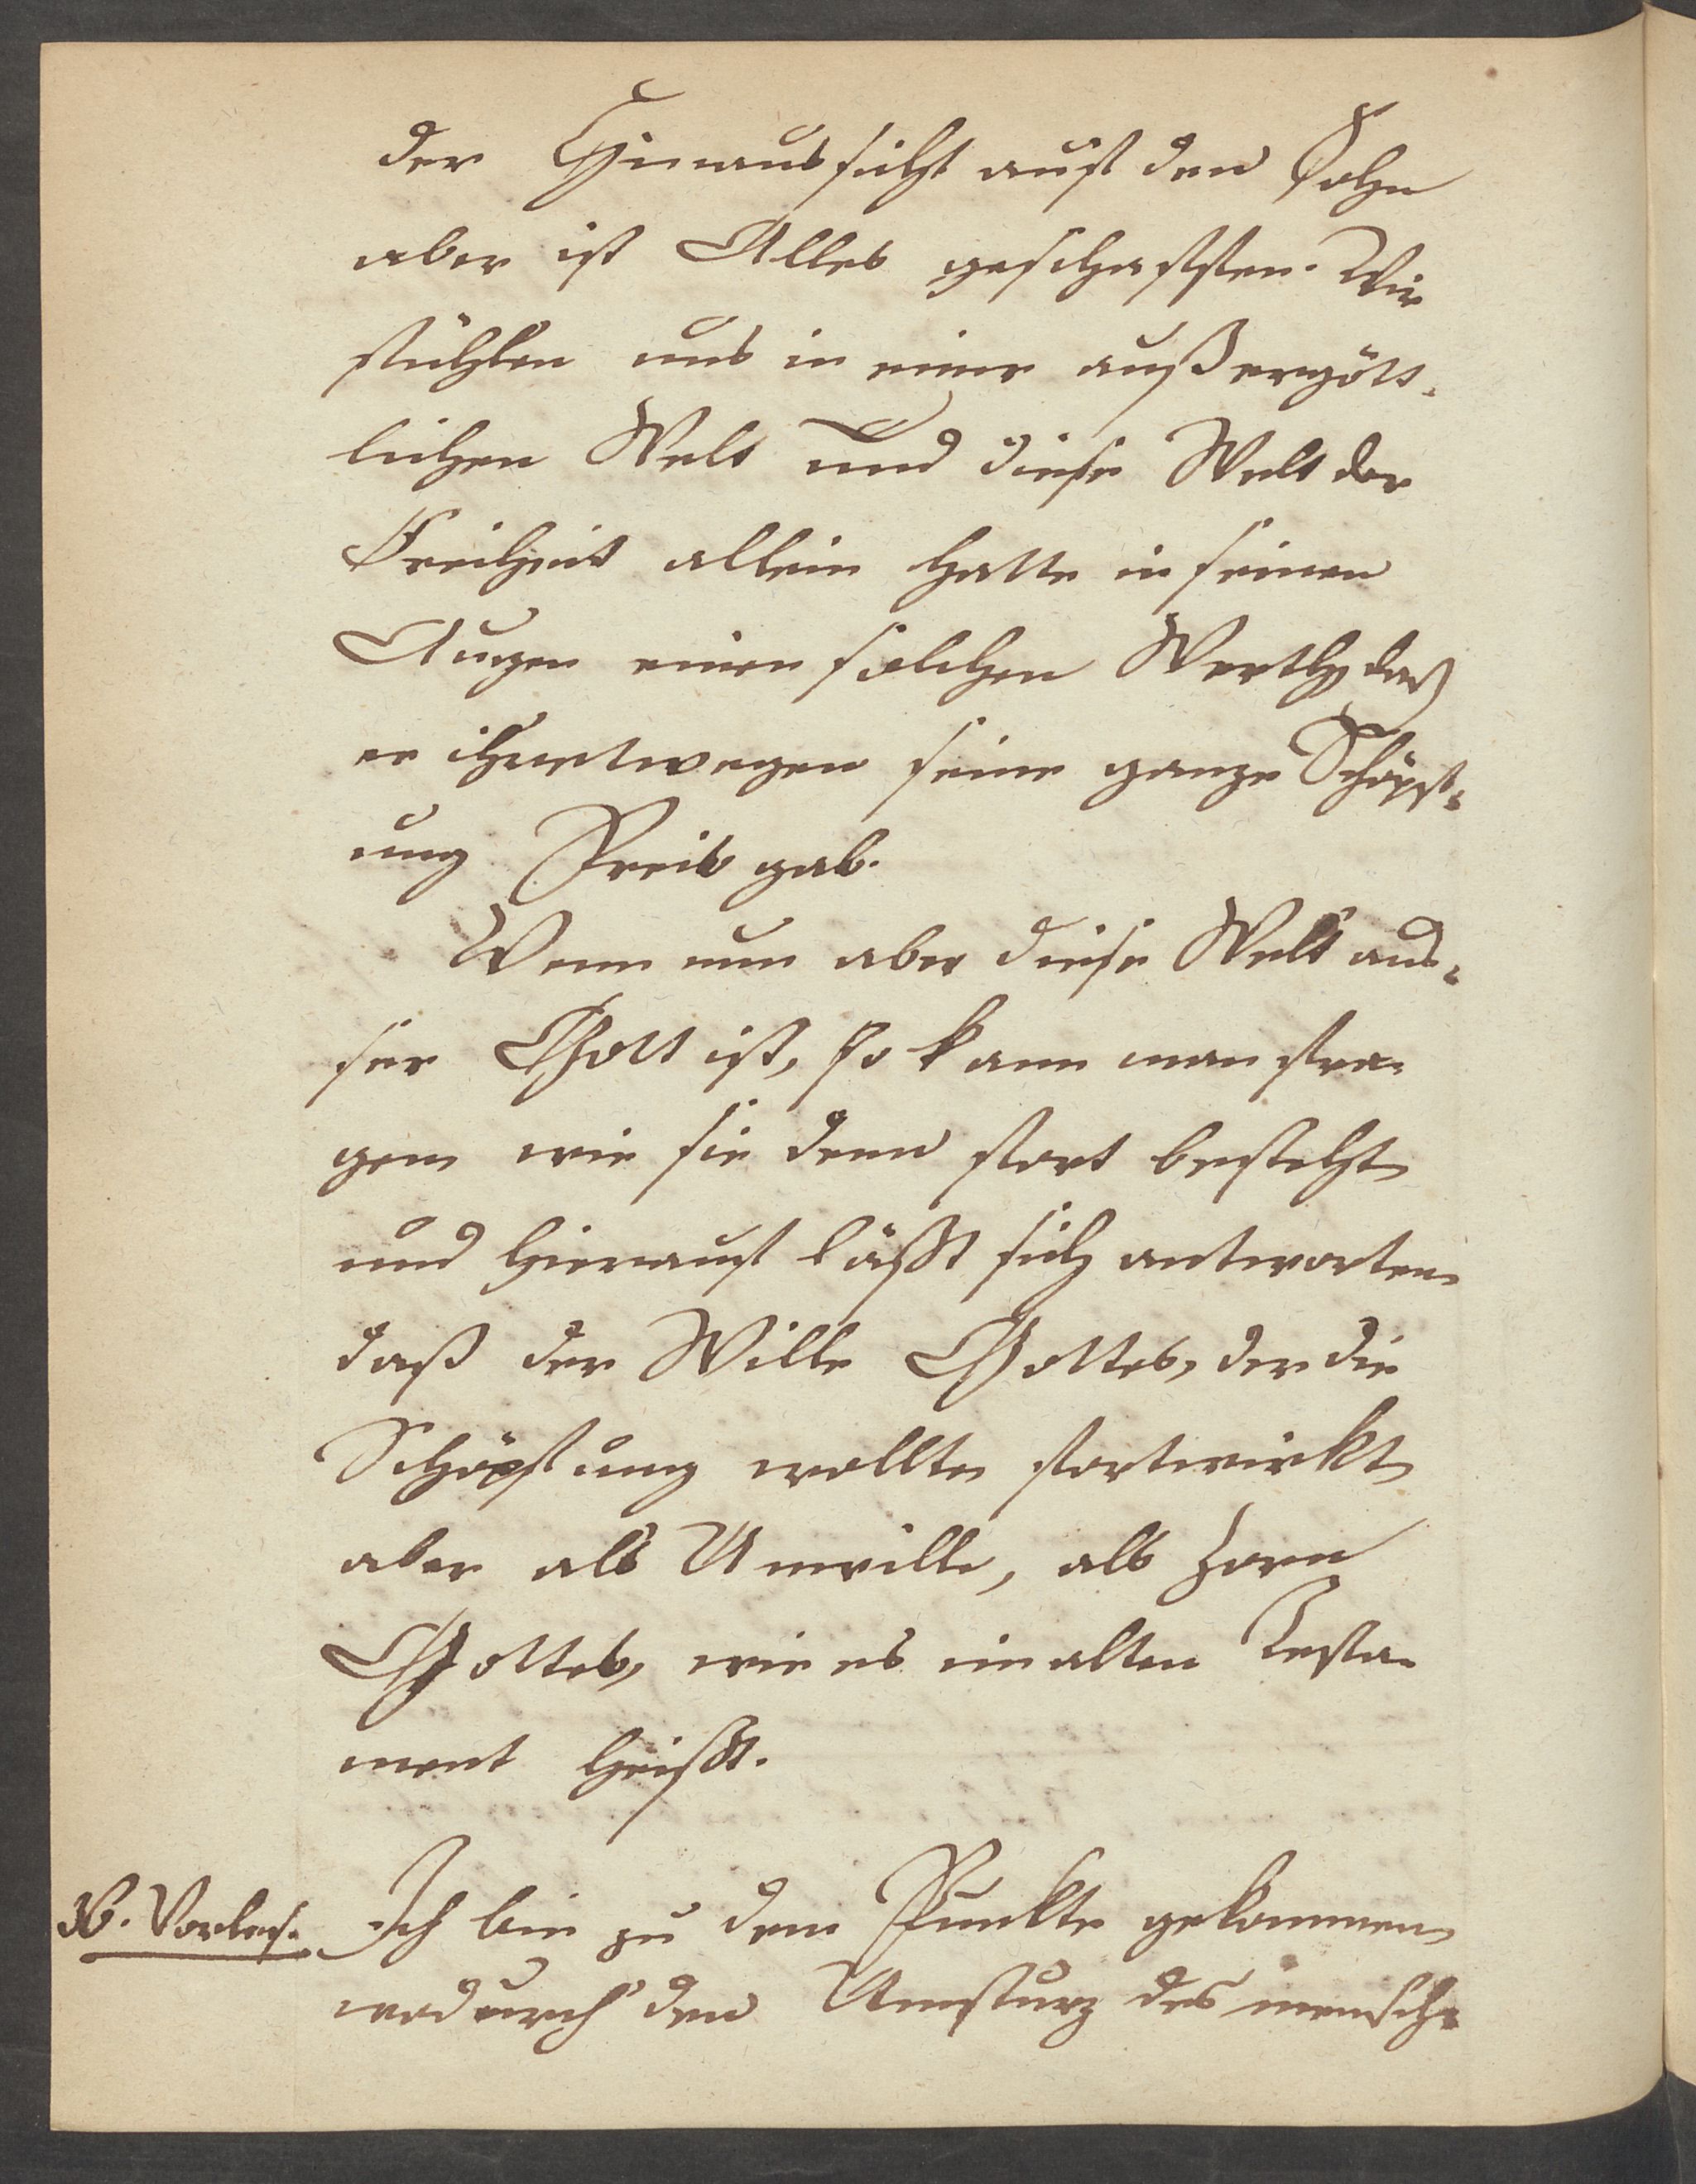 der Hinaussicht auf den Sohn
aber ist Alles geschaffen. Wir
fühlen uns in einer außergött-
lichen Welt und diese Welt der
Freiheit allein hatte in seinen
Augen einen solchen Werth, daß
er ihretwegen seine ganze Schöpf-
ung Preis gab.
Wenn nun aber diese Welt aus-
ser Gott ist, so kann man fra-
gen wie sie denn fort besteht,
und hierauf läßt sich antworten,
daß der Wille Gottes, der die
Schöpfung wollte, fortwirkt,
aber als Unwille, als Zorn
Gottes, wie es im alten Testa-
ment heißt.
36. Vorles. Ich bin zu dem Punkte gekommen,
wo durch den Umsturz des mensch-